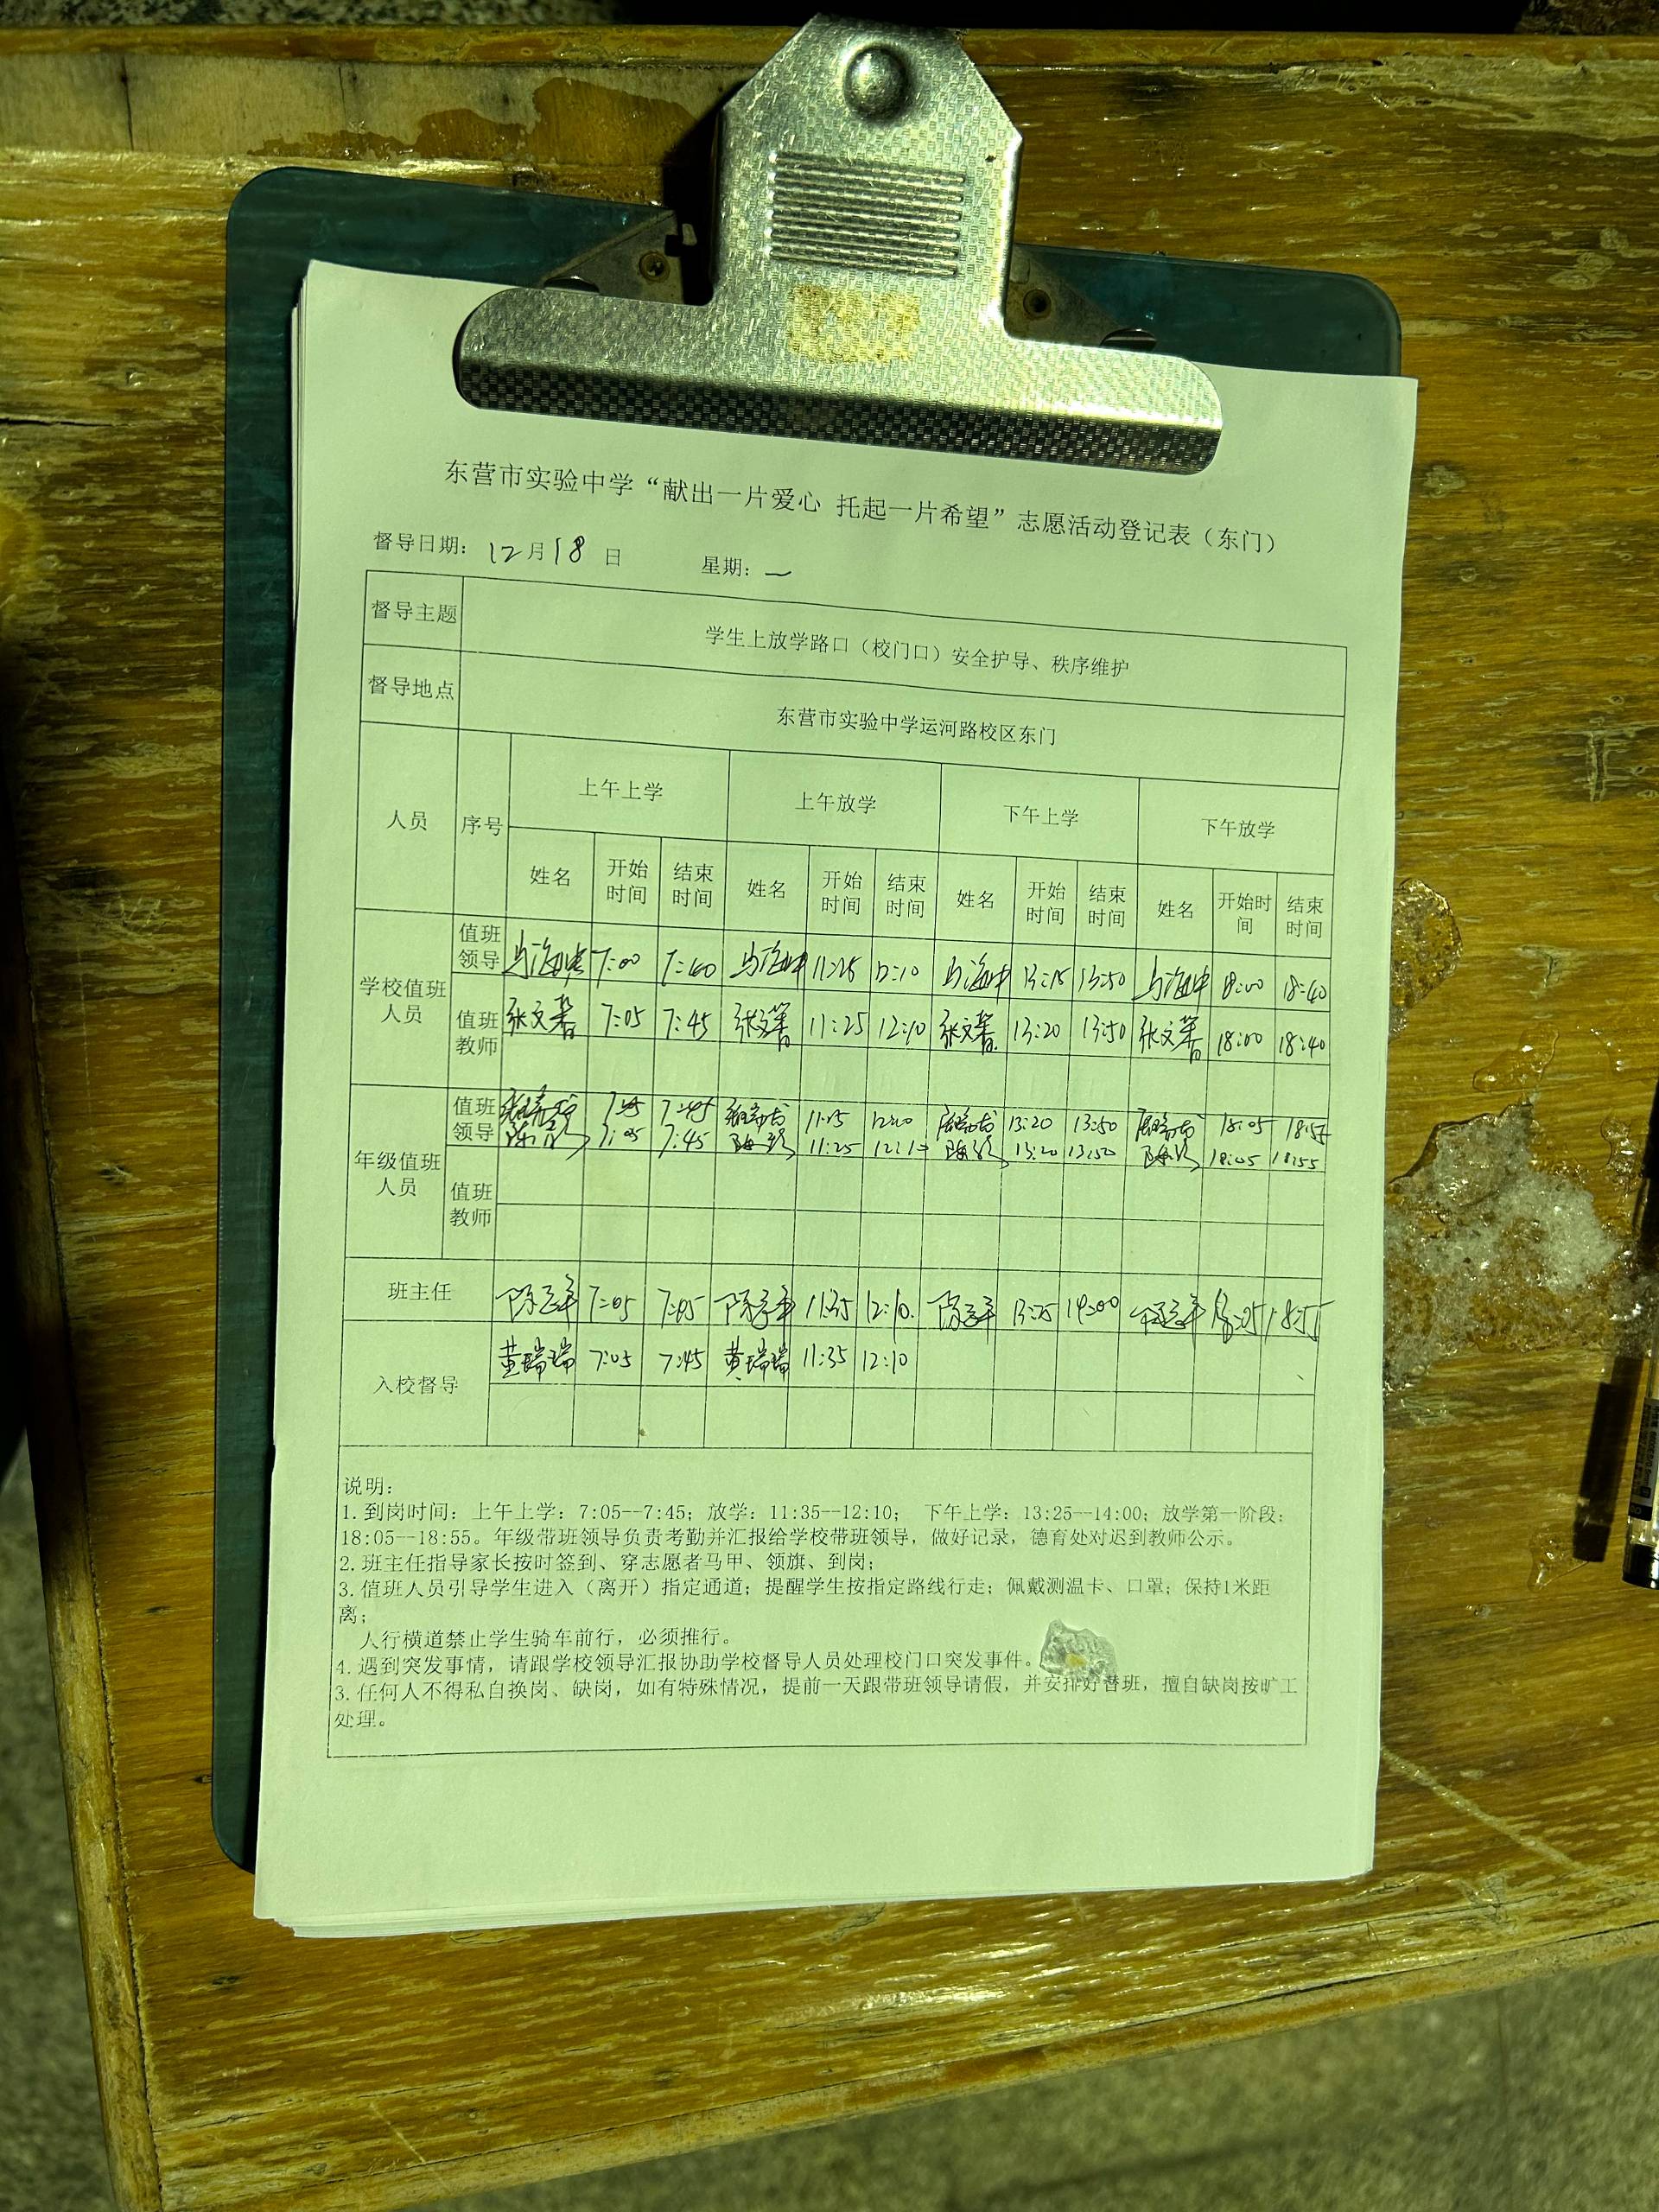 东营市实验中学“献出一片爱心 托起一片希望”志愿活动登记表（东门）
督导日期：12月18日 星期：一
督导主题 学生上放学路口（校门口）安全护导、秩序维护
督导地点 东营市实验中学运河路校区东门
人员 序号 上午上学 上午放学 下午上学 下午放学
姓名 开始时间 结束时间 姓名 开始时间 结束时间 姓名 开始时间 结束时间 姓名 开始时间 结束时间
学校值班人员
值班领导 7:00 7:40 11:25 12:10 13:15 13:50 18:00 18:40
值班教师 张文馨 7:05 7:45 张文馨 11:25 12:10 张文馨 13:20 13:50 张文馨 18:00 18:40
年级值班人员
值班领导 7:45 13:20 13:50 18:05 18:55
7:05 7:45 11:25 12:10 13:20 13:50 18:05 18:55
值班教师
班主任 7:05 7:45 11:35 12:10 13:25 14:00 18:05 18:55
入校督导 黄瑞瑞 7:05 7:45 黄瑞瑞 11:35 12:10
说明：
1.到岗时间：上午上学：7:05--7:45；放学：11:35--12:10； 下午上学：13:25--14:00；放学第一阶段：
18:05--18:55。年级带班领导负责考勤并汇报给学校带班领导，做好记录，德育处对迟到教师公示。
2.班主任指导家长按时签到、穿志愿者马甲、领旗、到岗；
3.值班人员引导学生进入（离开）指定通道；提醒学生按指定路线行走；佩戴测温卡、口罩；保持1米距
离；
人行横道禁止学生骑车前行，必须推行。
4.遇到突发事情，请跟学校领导汇报协助学校督导人员处理校门口突发事件。
3.任何人不得私自换岗、缺岗，如有特殊情况，提前一天跟带班领导请假，并安排好替班，擅自缺岗按旷工
处理。